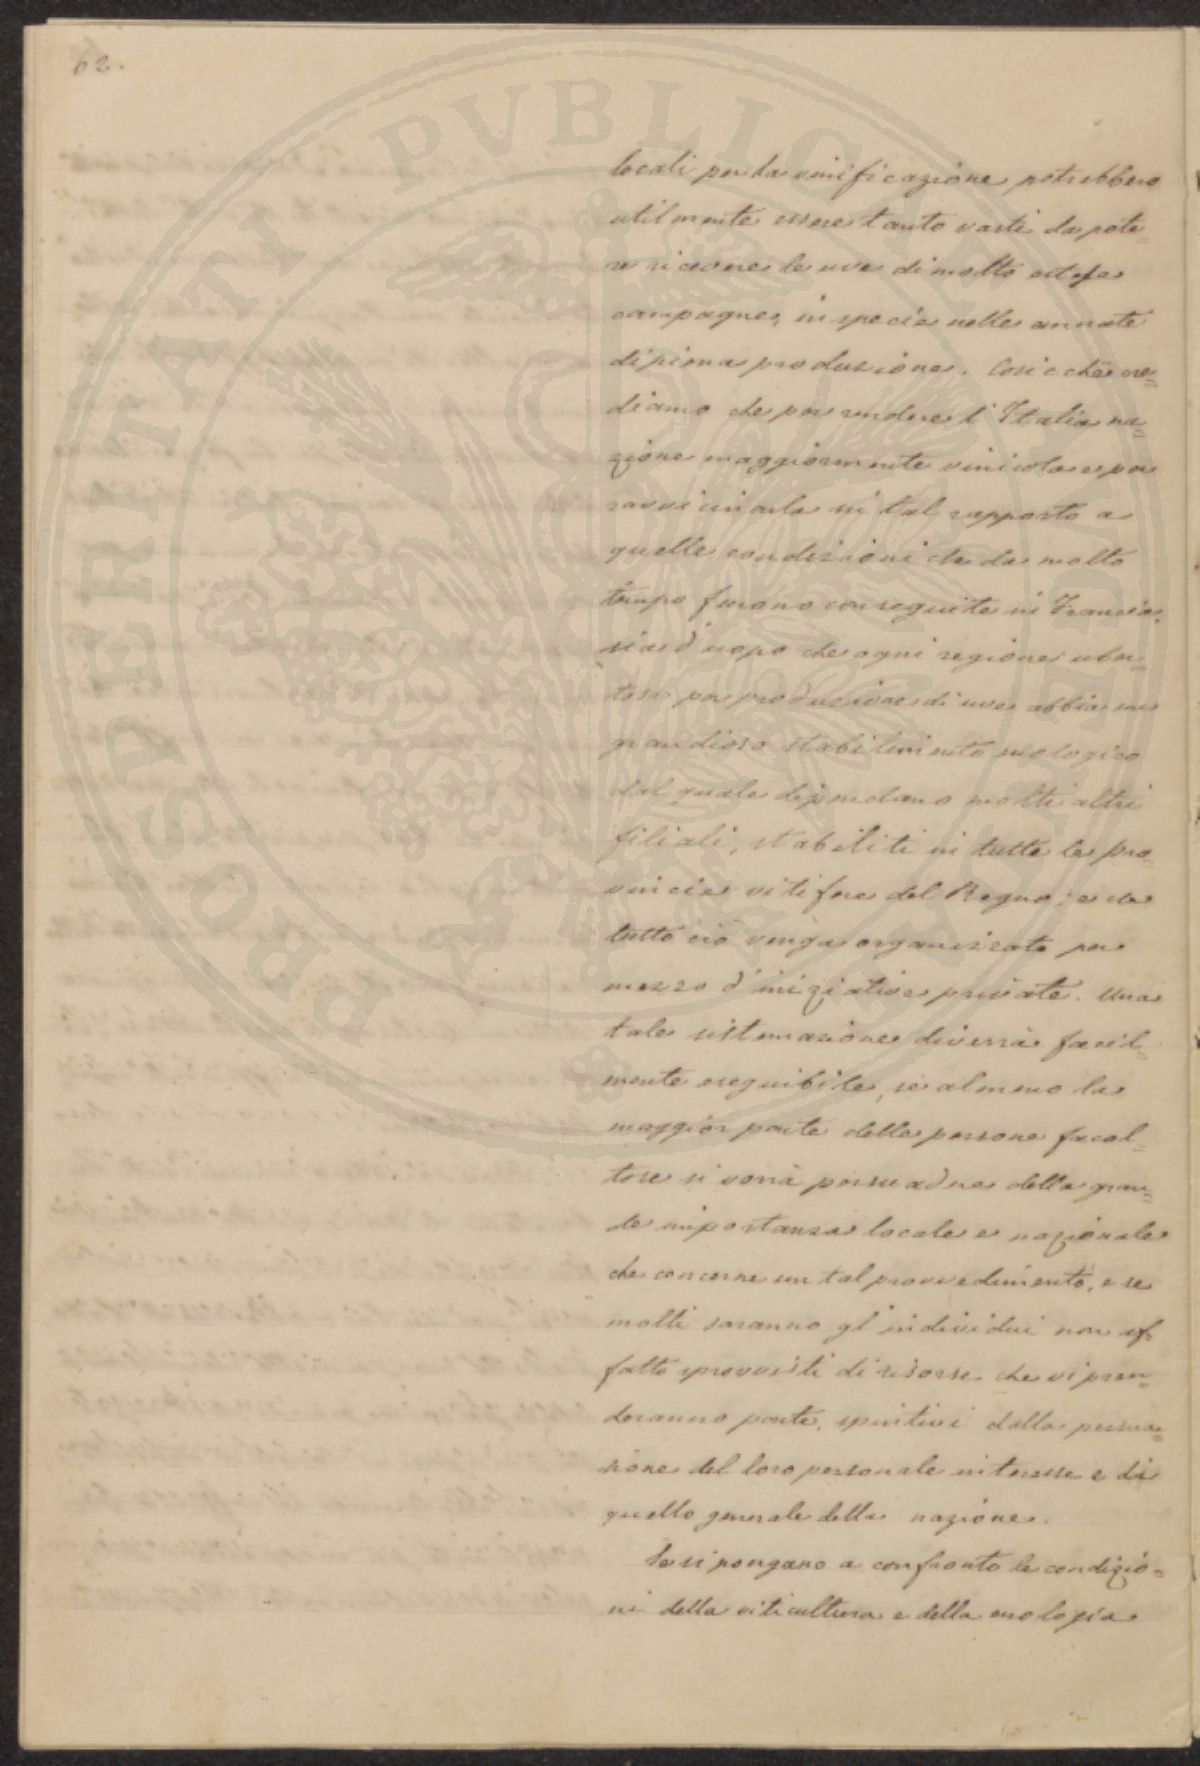 62.
PROSPERITATI PUBLICAE
locali per la vinificazione potrebbero
utilmente essere tanto vasti da pote=
re ricevere le uve di molto estese
campagne, in specie nelle annate
di piena produzione. Cosicchè cre=
diamo che per rendere l'Italia na=
zione maggiormente vinicola e per
ravvicinarla in tal rapporto a
quelle condizioni che da molto
tempo furono conseguite in Francia,
sia d'uopo che ogni regione uber=
tosa per produzione di uve abbia un
grandioso stabilimento enologico
dal quale dipendano molti altri
filiali, stabiliti in tutte le pro=
vincie vitifere del Regno; e che
tutto ciò venga organizzato per
mezzo d'iniziative private. Una
tale sistemazione diverrà facil=
mente eseguibile, se almeno la
maggior parte delle persone facol=
tose si vorrà persuadere della gran=
de importanza locale e nazionale
che concerne un tal provvedimento, e se
molti saranno gl'individui non af=
fatto sprovvisti di risorse che vi pren=
deranno parte, spintivi dalla persua=
sione del loro personale interesse e di
quello generale della nazione.
Se si pongano a confronto le condizio=
ni della viticultura e della enologia